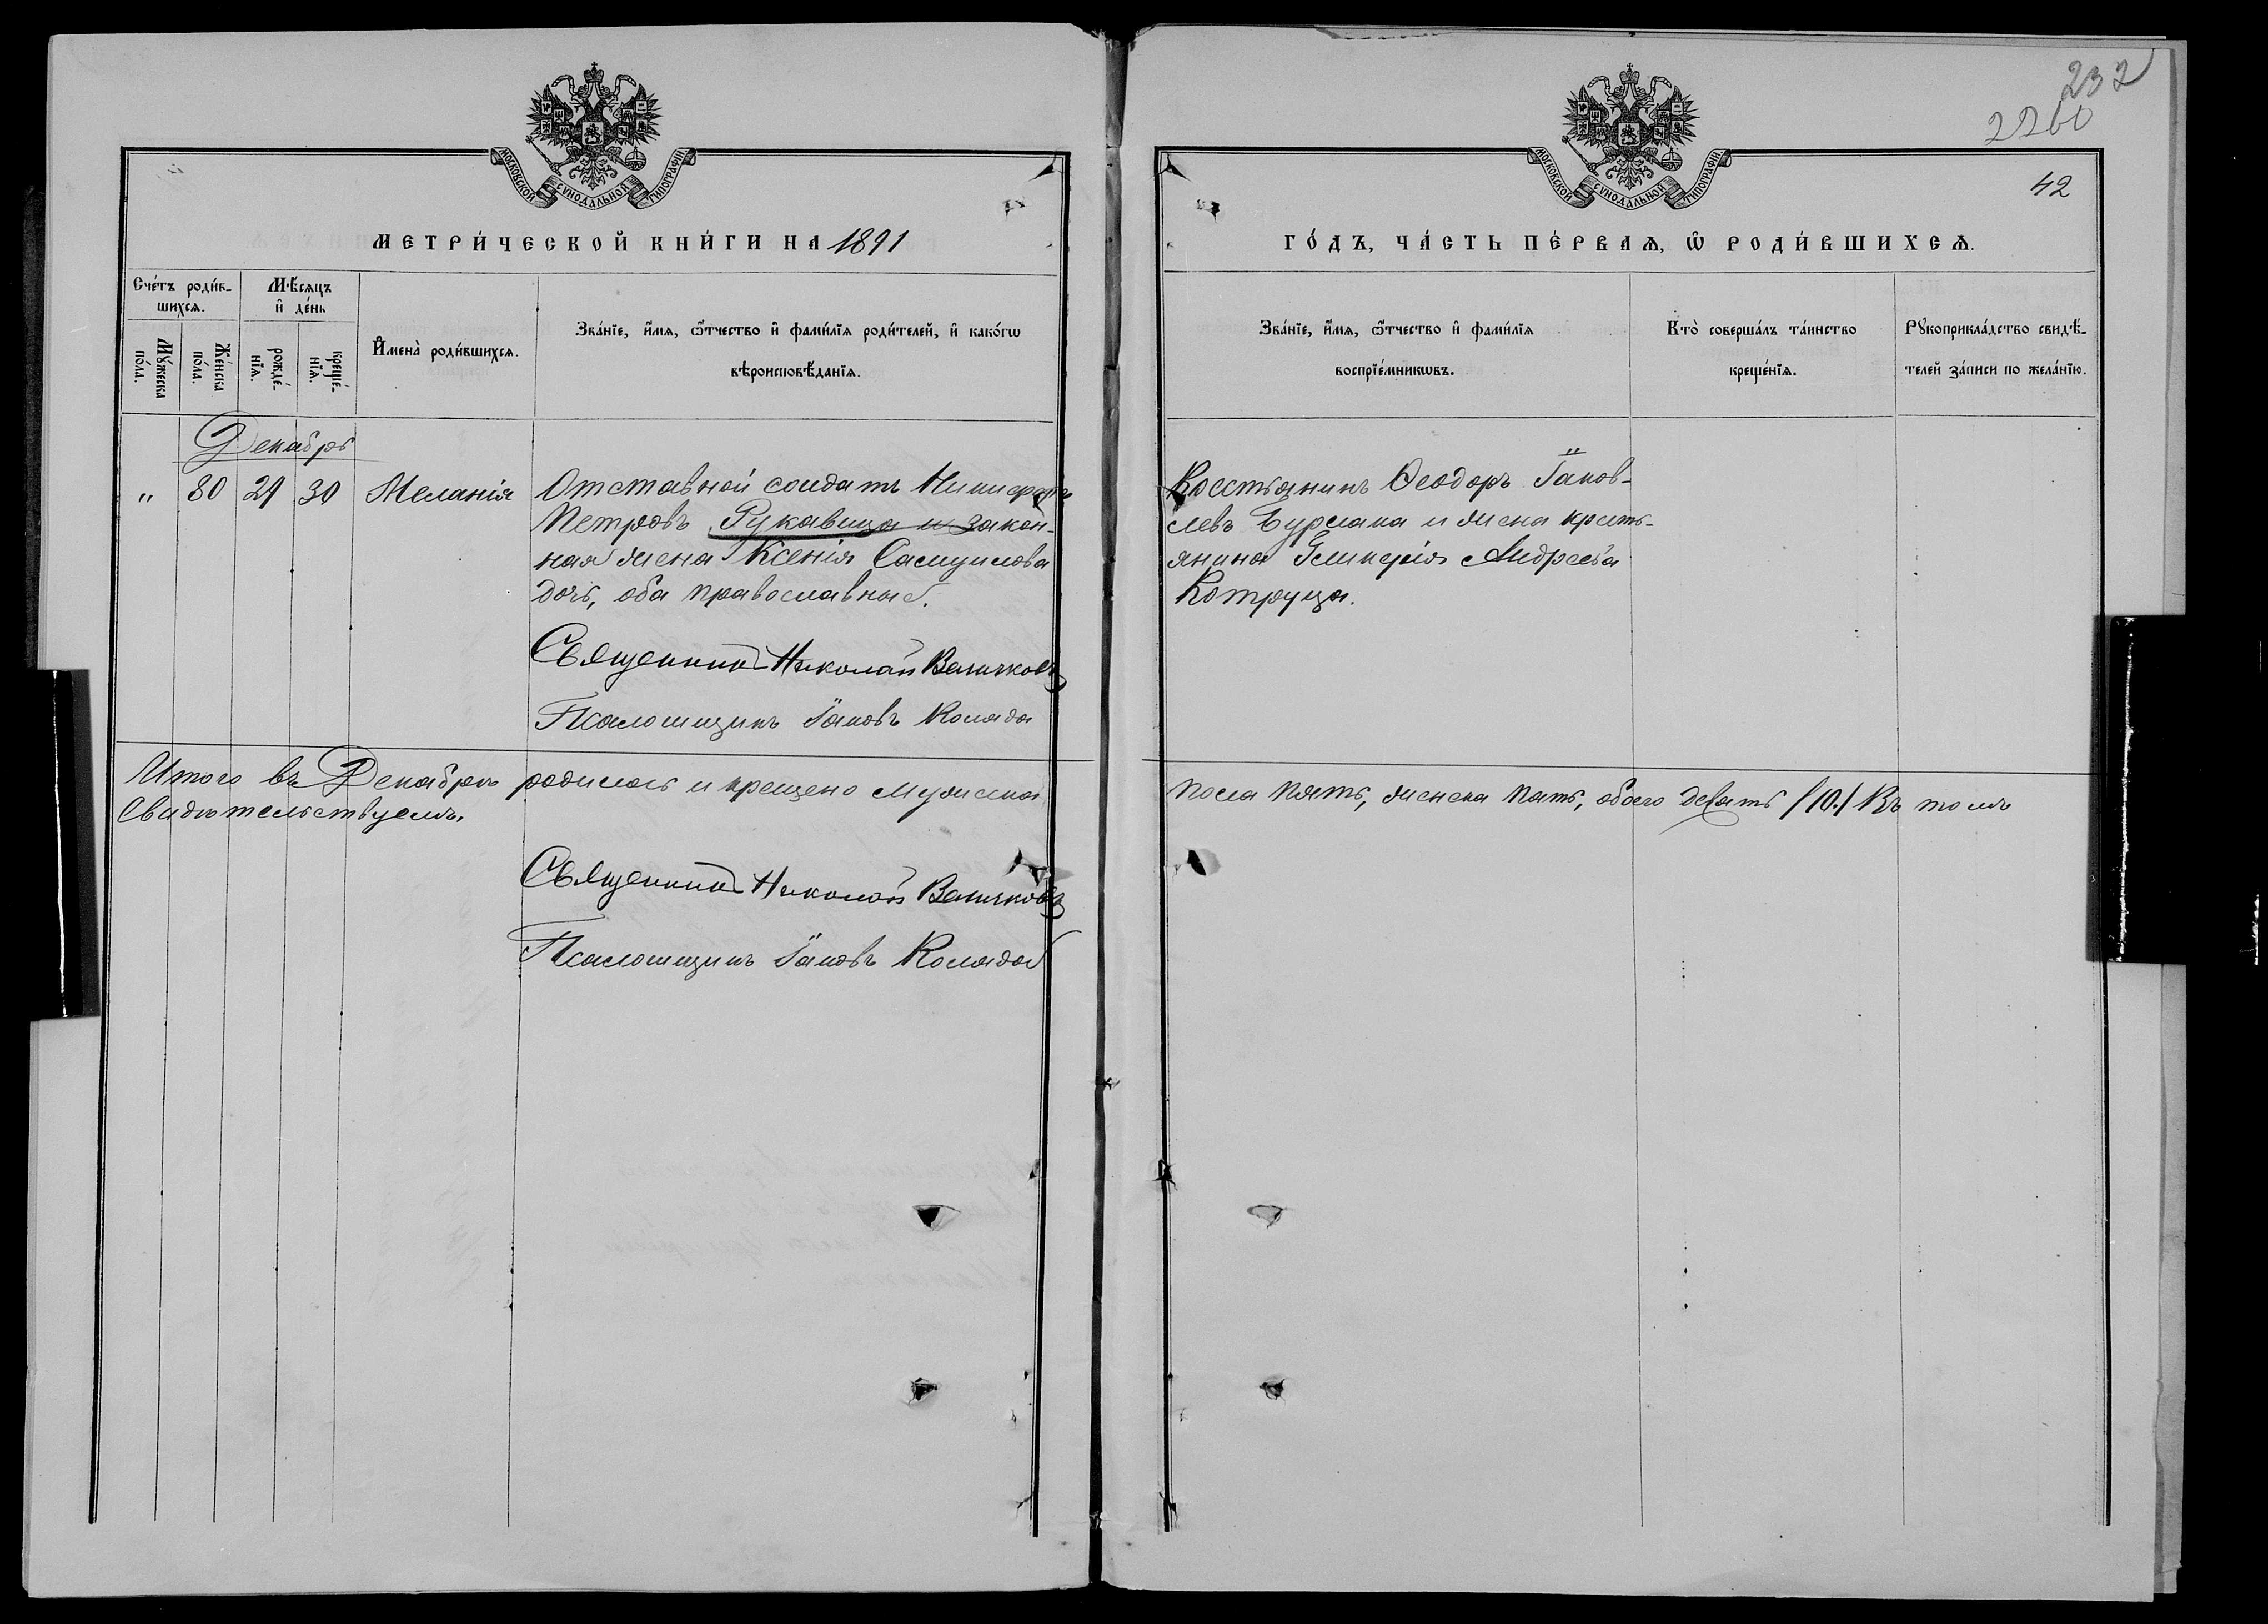 232
2260
42
МОСКОВСКОЙ СѴНОДАЛЬНОЙ ТИПОГРАФІИ
МЕТРИ́ЧЕСКОЙ КНИ́ГИ НА 1891
Сче́тъ роди́в-
шихсѧ.
Мѣ́сѧцъ
и҆ де́нь
Мꙋ́жеска
по́ла.
Же́нска
по́ла.
рожде́-
нїѧ.
креще́-
нїѧ.
И҆мена̀ роди́вшихсѧ.
Зва́нїе, и҆́мѧ, ѻ҆́тчество и҆ фами́лїѧ роди́телей, и҆ како́гѡ
вѣроисповѣ́данїѧ.
Декабрь
" 80 29 30 Меланія
Отставной солдатъ Никифоръ
Петровъ Рукавица и закон-
ная жена Ксенія Самуилова
дочь, оба православные.
Священникъ Николай Величковъ
Псаломщикъ Іаковъ Коляда
Итого въ Декабрѣ родилось и крещено мужеска
Свидѣтельствуемъ.
Священникъ Николай Величковъ
Псаломщикъ Іаковъ Коляда
МОСКОВСКОЙ СѴНОДАЛЬНОЙ ТИПОГРАФІИ
ГО́ДЪ, ЧА́СТЬ ПЕ́РВАѦ, Ѡ҆ РОДИ́ВШИХСѦ.
Зва́нїе, и҆́мѧ, ѻ҆́тчество и҆ фами́лїѧ
воспрїе́мникѡвъ.
Кто̀ соверша́лъ та́инство
креще́нїѧ.
Рꙋкоприкла́дство свидѣ́-
телей за́писи по жела́нїю.
Крестьянинъ Ѳеодоръ Іаков-
левъ Бурлака и жена кресть-
янина Гликерія Андреева
Котруца.
пола пять, женска пять, обоего десять /10./ Въ томъ